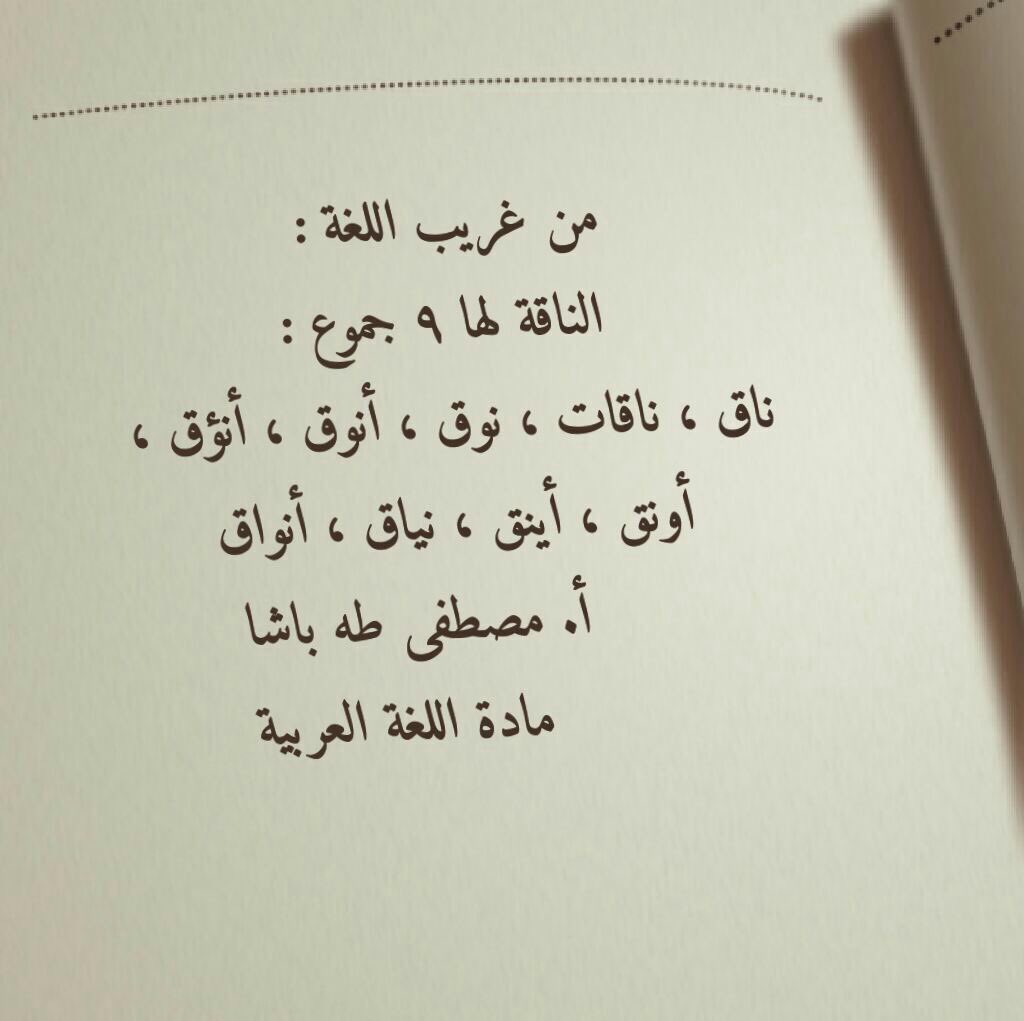 من غريب اللغة :
الناقة لها ٩ جموع :
ناق ، ناقات ، نوق ، أنوق ، أنؤق ،
أونق ، أينق ، نياق ، أنواق
أ. مصطفى طه باشا
مادة اللغة العربية